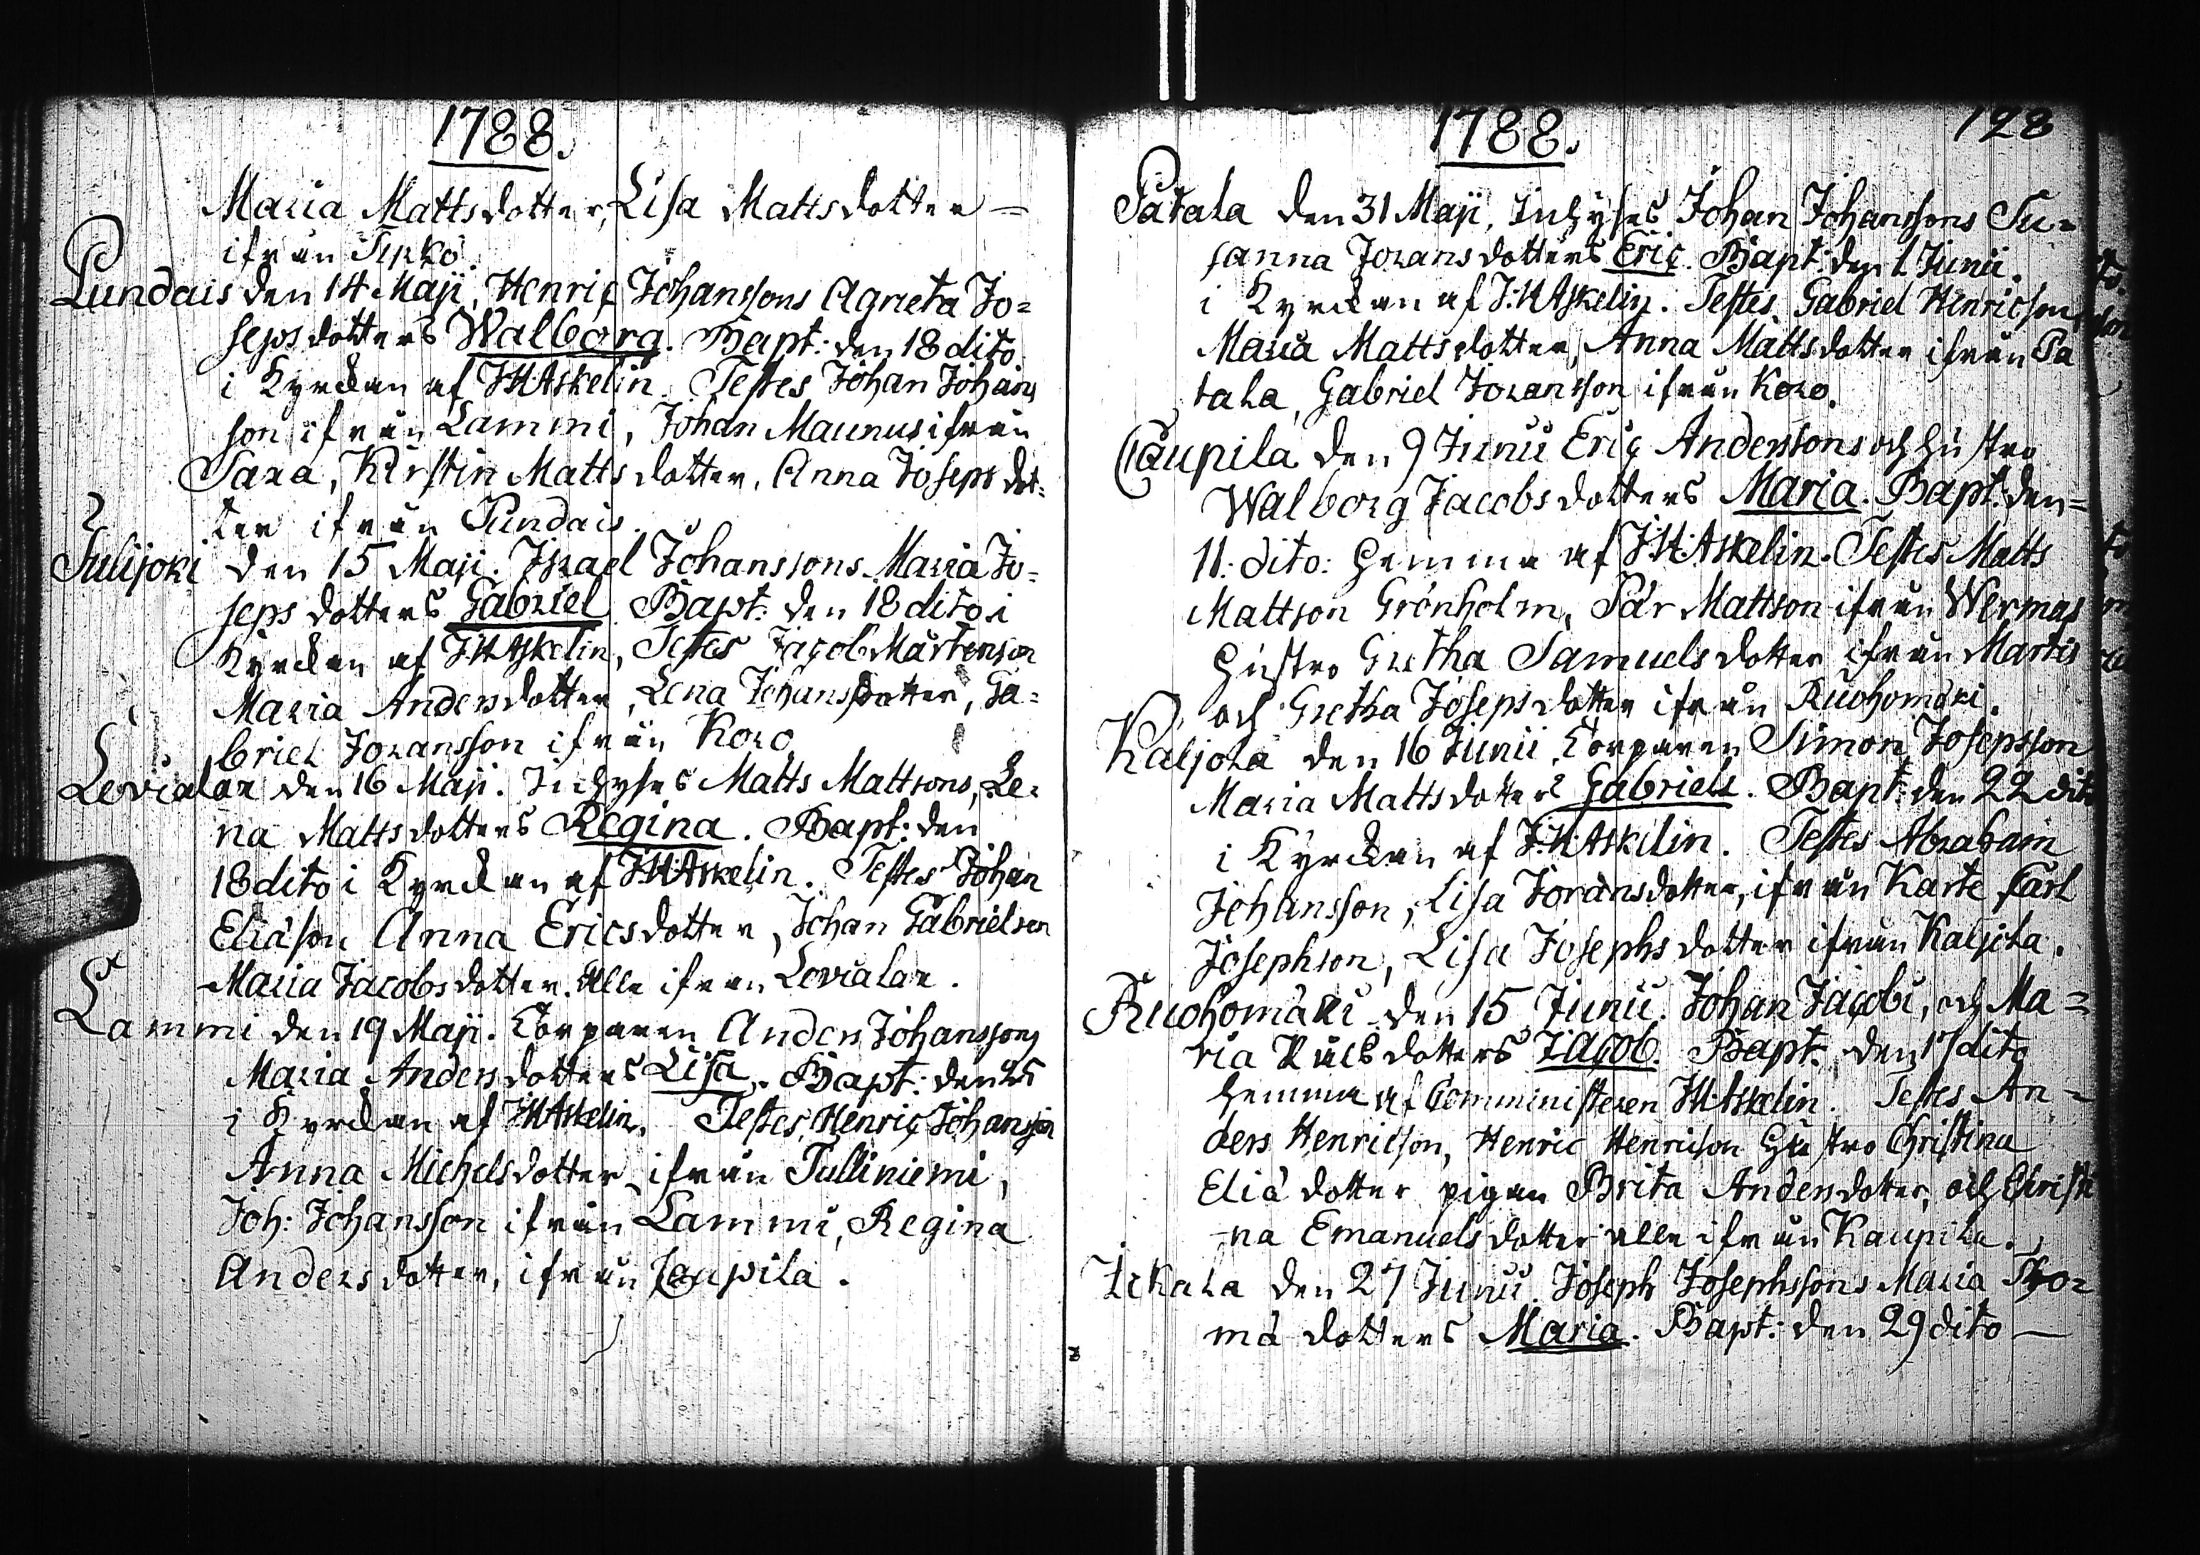 1788.
Maria Mattsdotter, Lisa Mattsdotter —
ifrån Sipko.
Pundais den 14 Maji, Henric Johanssons Agneta Jo=
sepsdotters Walborg. Bapt: den 18 dito
i Kyrckan af J:H:Askelin. Testes Johan Johans
son ifrån Lammi, Johan Maunus ifrån
Sara, Kirstin Mattsdotter, Anna Josepsdot=
ter ifrån Pundais.
Julijoki den 15 Maji. Israel Johanssons Maria Jo=
sepsdotters Gabriel Bapt: den 18 dito i
Kyrckan af J:H:Askelin, Testes Jacob Mårtenson
Maria Andersdotter, Lena Johansdotter, Ga=
briel Joransson ifrån Koro
Levialax den 16 Maji. Inhyses Matts Mattsons, Le=
na Mattsdotters Regina. Bapt: den
18 dito i Kyrckan af J:H:Askelin. Testes Johan
Eliäson Anna Ericsdotter, Johan Gabrielson
Maria Jacobsdotter. Alle ifrån Levialax.
Lammi den 19 Maji. Torparen Anders Johanssons
Maria Andersdotters Lisa. Bapt: den 25
i Kyrckan af J:H:Askelin. Testes Henric Johansson
Anna Michelsdotter ifrån Tulliniemi,
Joh: Johansson ifrån Lammi, Regina
Andersdotter, ifrån Caupila.
1788.
128
Patala den 31 Maji, Inhyses Johan Johanssons Su=
sanna Joransdotters Eric. Bapt: den 1 Junii.
i Kyrckan af J:H:Askelin. Testes Gabriel Henricson,
Maria Mattsdotter, Anna Mattsdotter ifrån Pa
tala, Gabriel Joransson ifrån Koro.
Caupila den 9 Junii Eric Anderssons och hustro
Walborg Jacobsdotters Maria. Bapt: den=
11. dito: hemma af J:H:Askelin. Testes Matts
Mattson Grönholm, Pär Mattson ifrån Wermas
hustro Gretha Samuelsdotter ifrån Martis
och Gretha Josepsdotter ifrån Ruohomäki.
Kaljola den 16 Junii Torparen Simon Josepsson
Maria Mattsdotters Gabriels. Bapt: den 22 dito
i Kyrckan af J:H:Askelin. Testes Abraham
Johansson, Lisa Joransdotter, ifrån Karte Carl
Josephson, Lisa Josephsdotter ifrån Kaljola.
Ruohomäki den 15 Junii. Johan Jacobs, och Ma=
ria dotters Jacob. Bapt: den 17 dito
hemma af Comministeren J:H:Askelin. Testes An=
ders Henricson, Henric Henricson hustro Christina
Eliä dotter pigan Brita Andersdotter, och Christi
na Emanuelsdotter alle ifrån Kaupila.
Ickala den 27 Junii. Joseph Josephssons Maria Tho=
mä dotters Maria. Bapt: den 29 dito —